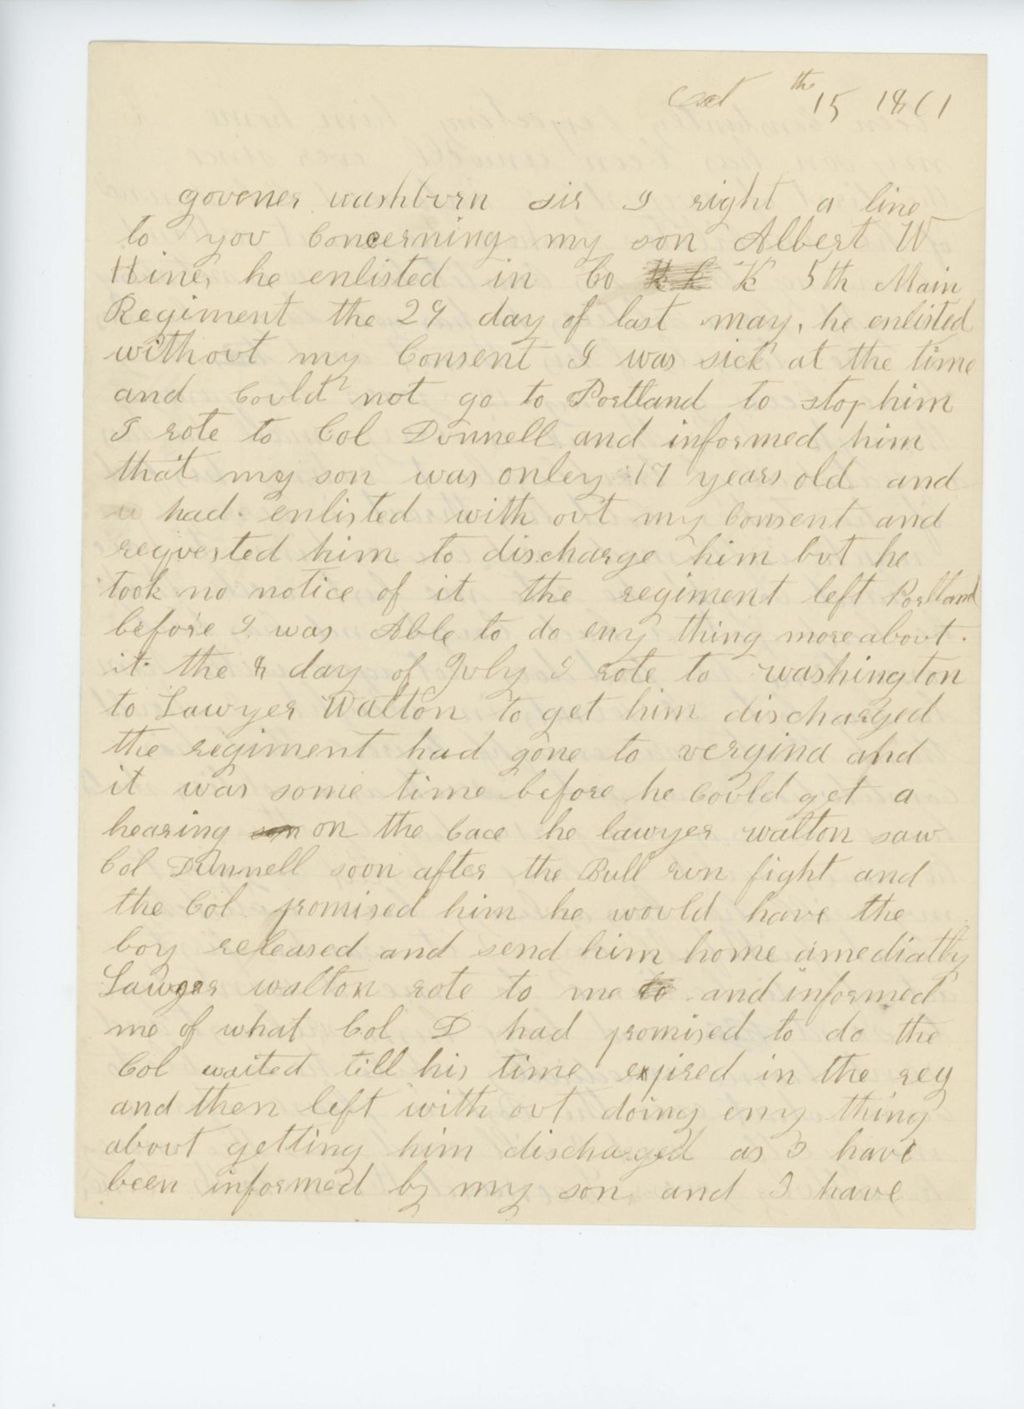 Oct th 15 1861
govener washburn sir I right a line
to you Concerning my son Albert W
Hine, he enlisted in Co K 5th Main
Regiment the 29 day of last may, he enlisted
without my Consent I was sick at the time
and Could not go to Portland to stop him
I rote to Col Dunnell and informed him
that my son was onley 17 years old and
had enlisted with out my Consent and
requested him to discharge him but he
took no notice of it the regiment left Portland
before I was Able to do eny thing more about
it the 8 day of July I rote to washington
to Lawyer Walton to get him discharged
the regiment had gone to vergina and
it was some time before he Could get a
hearing on the Cace he lawyer walton saw
Col Dunnell soon after the Bull run fight and
the Col promised him he would have the
boy released and send him home amediatly
Lawyer walton rote to me and informed
me of what Col D had promised to do the
Col waited till his time expired in the reg
and then left with out doing eny thing
about getting him discharged as I have
been informed by my son and I have